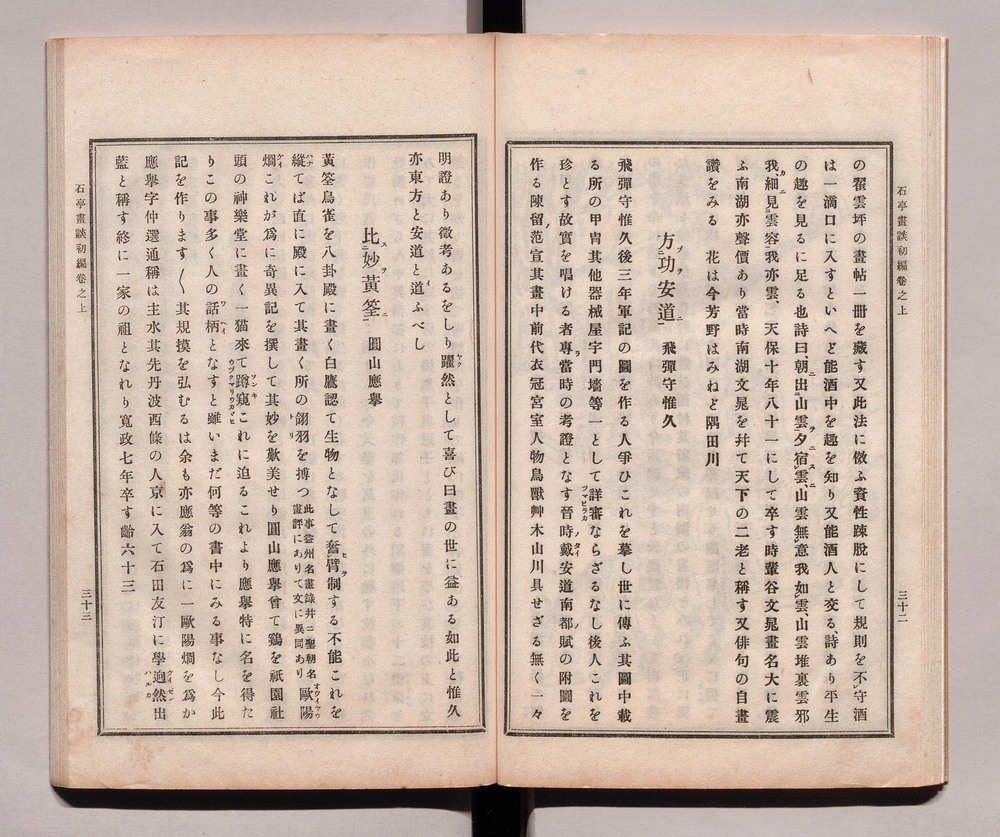 石亭畫談初編卷之上
三十二
の翟雲坪の畫帖一冊を藏す又此法に倣ふ資性疎脫にして規則を不守酒
は一滴口に入すといへど能酒中を趣を知り又能酒人と交る詩あり平生
の趣を見るに足る也詩曰朝出山雲夕宿雲、山雲無意我如雲、山雲堆裏雲邪
我、細見雲容我亦雲、 天保十年八十一にして卒す時輩谷文晁畫名大に震
ふ南湖亦聲價あり當時南湖文晁を幷て天下の二老と稱す又俳句の自畫
讚をみる 花は今芳野はみねど隅田川
方功安道 飛彈守惟久
飛彈守惟久後三年軍記の圖を作る人爭ひこれを摹し世に傳ふ其圖中載
る所の甲冑其他器械屋宇門墻等一として詳審ならざるなし後人これを
珍とす故實を唱ける者專當時の考證となす晉時戴安道南都賦の附圖を
作る陳留范宣其畫中前代衣冠宮室人物鳥獸艸木山川具せざる無く一々
明證あり徵考あるをしり躍然として喜び曰畫の世に益ある如此と惟久
亦東方と安道と道ふべし
比妙黃筌 圓山應擧
黃筌鳥雀を八卦殿に畫く白鷹認て生物となして奮臂制する不能これを
縱てば直に殿に入て其畫く所の翎羽を搏つ此事益州名畫錄幷ニ聖朝名畫評にありて文に異同あり歐陽
烱これが爲に奇異記を撰して其妙を歎美せり圓山應擧曾て鷄を祇園社
頭の神樂堂に畫く一猫來て蹲窺これに迫るこれより應擧特に名を得た
りこの事多く人の話柄となすと雖いまだ何等の書中にみる事なし今此
記を作ります〱其規摸を弘むるは余も亦應翁の爲に一歐陽烱を爲か
應擧字仲選通稱は主水其先丹波西條の人京に入て石田友汀に學逈然出
藍と稱す終に一家の祖となれり寬政七年卒す齡六十三
石亭畫談初編卷之上
三十三